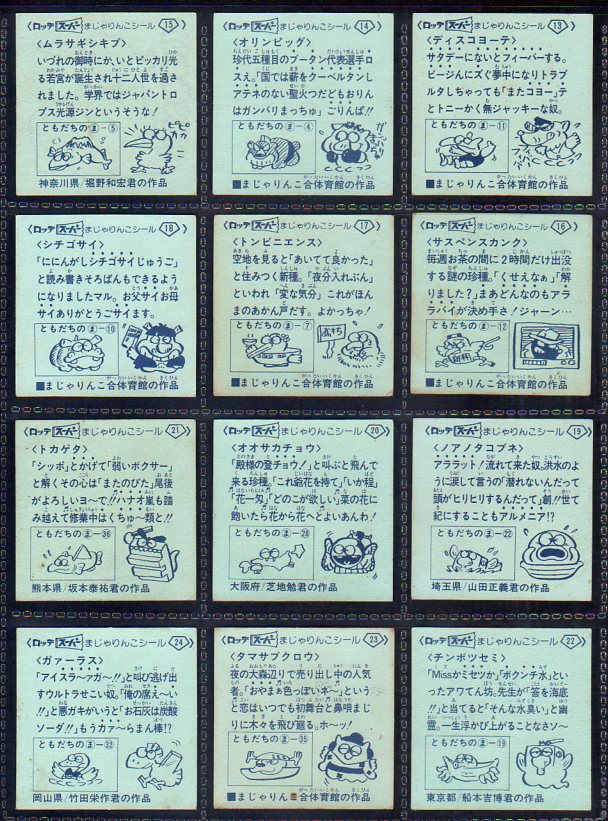 ロッテ スーパー まじゃりんこシール 15
〈ムラサギシキブ〉
いづれの御時にか、いとビッカリ光
る若宮が誕生され十二人世を過さ
れました。学界ではジャパントロ
プス光源ジンというそうな!
ともだちのま-5
ピカピカ
神奈川県/堀野和宏君の作品
ロッテ スーパー まじゃりんこシール 14
〈オリンピッグ〉
珍代五種目のブータン代表選手ロ
スえ。「国では薪をクーベルタンし
アテネのない聖火つだどもおりん
はガンバりまっちゅ」ごりんぱ!!
ともだちのま-4
■まじゃりんこ合体育館の作品
ロッテ スーパー まじゃりんこシール 13
〈ディスコヨーテ〉
サタデーにないとフィーバーする。
ビージんにズぐ夢中になりトラブ
ルタしちゃっても「またコヨー」テ
とトニーかく無ジャッキーな奴。
ともだちのま-11
■まじゃりんこ合体育館の作品
ロッテ スーパー まじゃりんこシール 18
〈シチゴサイ〉
「ににんがしシチゴサイじゅうご」
と読み書きそろばんもできるよう
になりましたマル。お父サイお母
サイありがとうごサイます。
ともだちのま-10
■まじゃりんこ合体育館の作品
ロッテ スーパー まじゃりんこシール 17
〈トンビニエンス〉
空地を見ると「あいてて良かった」
と住みつく新種。「夜分入れぶん」
といわれ「変な気分」これがほん
まのあかん戸だす。よかっちゃ!
ともだちのま-7
あきち
■まじゃりんこ合体育館の作品
ロッテ スーパー まじゃりんこシール 16
〈サスペンスカンク〉
毎週お茶の間に2時間だけ出没
する謎の珍種。「くせえなぁ」「解
りました?」まあどんなのもアラ
ラバイが決め手さ!ジャーン…
ともだちのま-12
■まじゃりんこ合体育館の作品
ロッテ スーパー まじゃりんこシール 21
〈トカゲタ〉
「シッポ」とかげて「弱いボクサー」
と解くその心は「またのびた」尾後
がよろしいヨ〜で!!ハナオ嵐も踏
み越えて修業中はくちゅ〜類と!!
ともだちのま-36
熊本県/坂本泰祐君の作品
ロッテ スーパー まじゃりんこシール 20
〈オオサカチョウ〉
「殿様の登チョウ!」と叫ぶと飛んで
来る珍種。「これ爺花を持て」「いか程」
「花一匁」「どのこが欲しい」菜の花に
飽いたら花から花へとよいあんわ!
ともだちのま-28
大阪府/芝地勉君の作品
ロッテ スーパー まじゃりんこシール 19
〈ノアノタコブネ〉
アララット!流れて来た奴。洪水のよ
うに涙して言うの「潜れないんだって
頭がヒりヒりするんだって」創!!世て
紀にすることもアルメニア!?
ともだちのま-22
埼玉県/山田正義君の作品
ロッテ スーパー まじゃりんこシール 24
〈ガァーラス〉
「アイスラ〜アガ〜!!」と叫び逃げ出
すウルトラせこい奴。「俺の席え〜い
!!」と悪ガキがいうと「お石灰は炭酸
ソーダ!!」もうカァ〜らまん棒!?
ともだちのま-32
岡山県/竹田栄作君の作品
ロッテ スーパー まじゃりんこシール 23
〈タマサブクロウ〉
夜の大森辺りで売り出し中の人気
者。「おやまぁ色っぽいネ〜」という
と恋はいつでも初舞台と鼻唄まじ
りに木々を飛び廻る。ホ〜ッ!
ともだちのま-35
■まじゃりんこ合体育館の作品
ロッテ スーパー まじゃりんこシール 22
〈チンボツセミ〉
「Missかミセツか」「ボクンチ水」とい
ったアワてん坊。先生が「答を海底
!!」と当てると「そんな水臭い」と幽
霊。一生浮かび上がることなさソ〜
ともだちのま-19
東京都/船本吉博君の作品